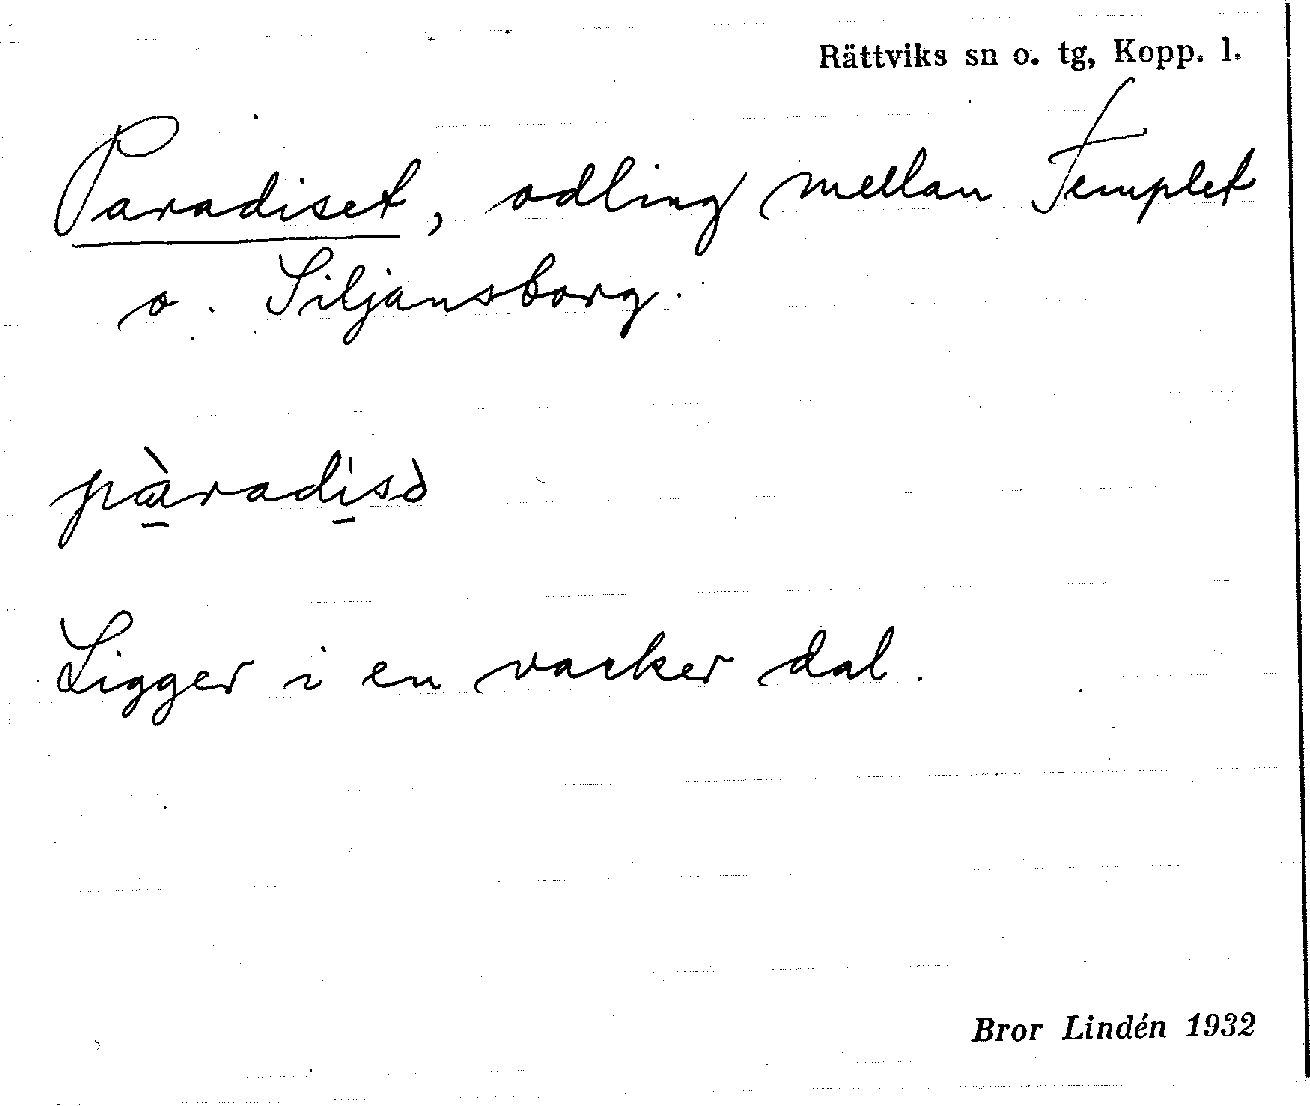 Rättviks sn o. tg, Kopp. l.
Paradiset, odling mellan Templet
o. Siljansborg.
pàradisò
Ligger i en vacker dal.
Bror Lindén 1932